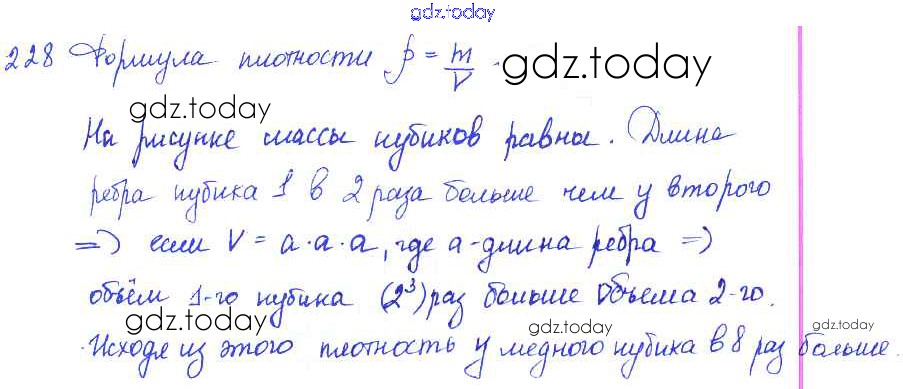 gdz.today
228 Формула плотности ρ = m/V . gdz.today
gdz.today
На рисунке массы кубиков равны. Длина
ребра кубика 1 в 2 раза больше чем у второго
=> если V = a·a·a, где a-длина ребра =>
объём 1-го кубика (2³) раз больше объема 2-го.
gdz.today gdz.today gdz.today
Исходя из этого плотность у медного кубика в 8 раз больше.